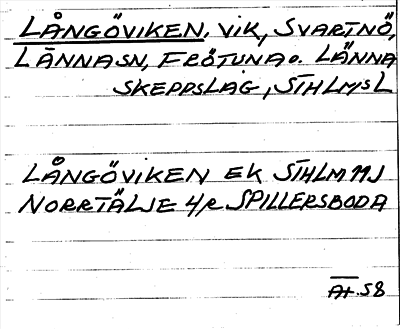 LÅNGÖVIKEN, VIK, SVARTNÖ,
LÄNNA SN, FRÖTUNA O. LÄNNA
SKEPPSLAG, STHLMS L
LÅNGÖVIKEN EK STHLM 11J
NORRTÄLJE 4/R SPILLERSBODA
At. 58